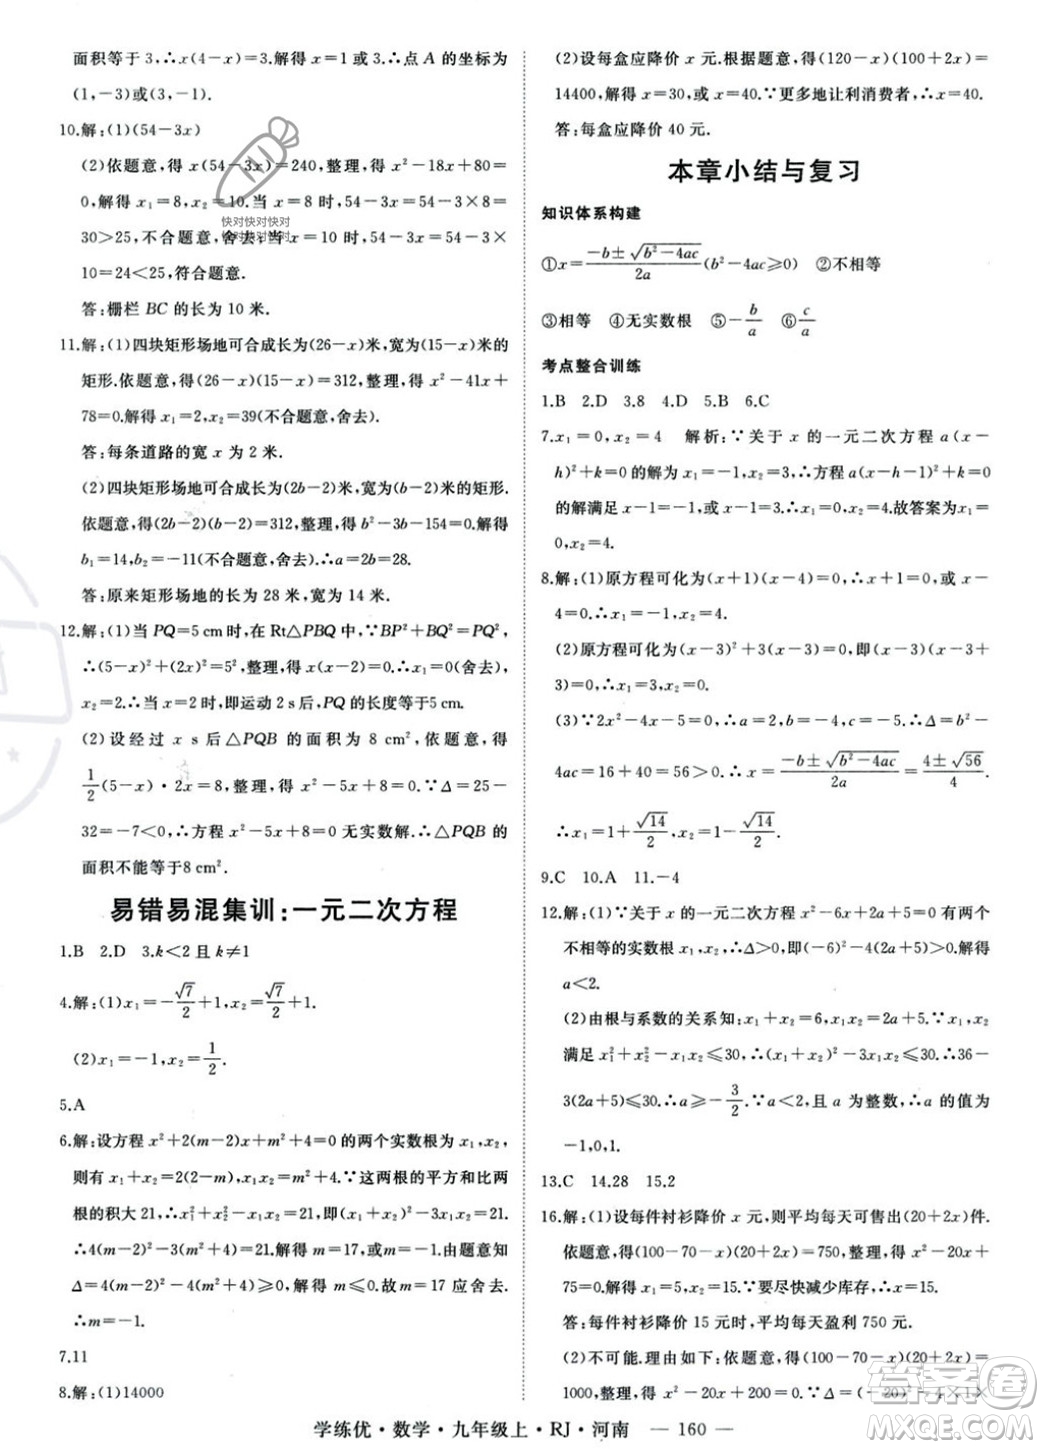 面积等于 3,∴x(4-x)=3.解得 x=1或3.∴点 A 的坐标为
(1,-3)或(3,-1).
10.解:(1)(54-3x)
(2)依题意,得 x(54-3x)=240,整理,得 x²-18x+80=
0,解得 x₁=8,x₂=10.当 x=8 时,54-3x=54-3×8=
30>25,不合题意,舍去;当 x=10时,54-3x=54-3×
10=24<25,符合题意.
答:栅栏 BC 的长为 10 米.
11.解:(1)四块矩形场地可合成长为(26-x)米,宽为(15-x)米的
矩形.依题意,得(26-x)(15-x)=312,整理,得 x²-41x+
78=0.解得 x₁=2,x₂=39(不合题意,舍去).
答:每条道路的宽 x 为 2 米.
(2)四块矩形场地可合成长为(2b-2)米,宽为(b-2)米的矩形.
依题意,得(2b-2)(b-2)=312,整理,得 b²-3b-154=0.解得
b₁=14,b₂=-11(不合题意,舍去).∴a=2b=28.
答:原来矩形场地的长为 28 米,宽为 14 米.
12.解:(1)当 PQ=5 cm时,在 Rt△PBQ 中,∵BP²+BQ²=PQ²,
∴(5-x)²+(2x)²=5²,整理,得 5x²-10x=0.解得 x₁=0(舍去),
x₂=2.∴当 x=2时,即运动 2 s 后,PQ 的长度等于5 cm.
(2)设经过 x s 后△PQB 的面积为 8 cm²,依题意,得
1/2(5-x)·2x=8.整理,得 x²-5x+8=0.∵Δ=25-
32=-7<0,∴方程 x²-5x+8=0 无实数解.∴△PQB 的
面积不能等于8 cm².
易错易混集训:一元二次方程
1.B 2.D 3.k<2 且 k≠1
4.解:(1)x₁=-√7/2+1,x₂=√7/2+1.
(2)x₁=-1,x₂=1/2.
5.A
6.解:设方程 x²+2(m-2)x+m²+4=0 的两个实数根为 x₁,x₂,
则有 x₁+x₂=2(2-m),x₁x₂=m²+4.∵这两根的平方和比两
根的积大 21,∴x₁²+x₂²-x₁x₂=21,即(x₁+x₂)²-3x₁x₂=21.
∴4(m-2)²-3(m²+4)=21,解得 m=17或 m=-1.由题意知
Δ=4(m-2)²-4(m²+4)≥0,解得 m≤0.故 m=17 应舍去.
∴m=-1.
7.11
8.解:(1)14000
(2)设每盒应降价 x 元.根据题意,得(120-x)(100+2x)=
14400,解得 x=30,或x=40.∵更多地让利消费者,∴x=40.
答:每盒应降价 40 元.
本章小结与复习
知识体系构建
①x=(-b±√(b²-4ac))/2a(b²-4ac≥0) ②不相等
③相等 ④无实数根 ⑤-b/a ⑥c/a
考点整合训练
1.B 2.D 3.8 4.D 5.B 6.C
7.x₁=0,x₂=4 解析:∵关于 x 的一元二次方程 a(x-
h)²+k=0 的解为 x=-1,x₂=3,∴方程 a(x-h-1)²+k=0
的解满足 x-1=-1,或 x-1=3,∴x=0,或 x=4.故答案为 x₁=
0,x₂=4.
8.解:(1)原方程可化为(x+1)(x-4)=0,∴x+1=0,或x-
4=0.∴x₁=-1,x₂=4.
(2)原方程可化为(x-3)²+3(x-3)=0,即(x-3)(x-3+
3)=0.∴x-3=0,或x=0.∴x₁=3,x₂=0.
(3)∵2x²-4x-5=0,∴a=2,b=-4,c=-5.∴Δ=b²-
4ac=16+40=56>0.∴x=(-b±√(b²-4ac))/2a=(4±√56)/4.
∴x₁=1+√14/2,x₂=1-√14/2.
9.C 10.A 11.-4
12.解:(1)∵关于 x 的一元二次方程 x²-6x+2a+5=0 有两个
不相等的实数根 x₁,x₂,∴Δ>0,即(-6)²-4(2a+5)>0.解得
a<2.
(2)由根与系数的关系知:x₁+x₂=6,x₁x₂=2a+5.∵x₁,x₂
满足x₁²+x₂²-x₁x₂≤30,∴(x₁+x₂)²-3x₁x₂≤30.∴36-
3(2a+5)≤30.∴a≥-3/2.∵a<2,且 a 为整数,∴a 的值为
-1,0,1.
13.C 14.28 15.2
16.解:(1)设每件衬衫降价 x 元,则平均每天可售出(20+2x)件.
依题意,得(100-70-x)(20+x)=750,整理,得 x²+20x+
75=0,解得 x₁=5,x₂=15.∵要尽快减少库存,∴x=15.
答:每件衬衫降价 15 元时,平均每天盈利 750 元.
(2)不可能.理由如下:依题意,得(100-70-x)(20+2x)=
1000,整理,得
学练优·数学·九年级上·RJ·河南 — 160 —
快对快对快对
快对快对快对